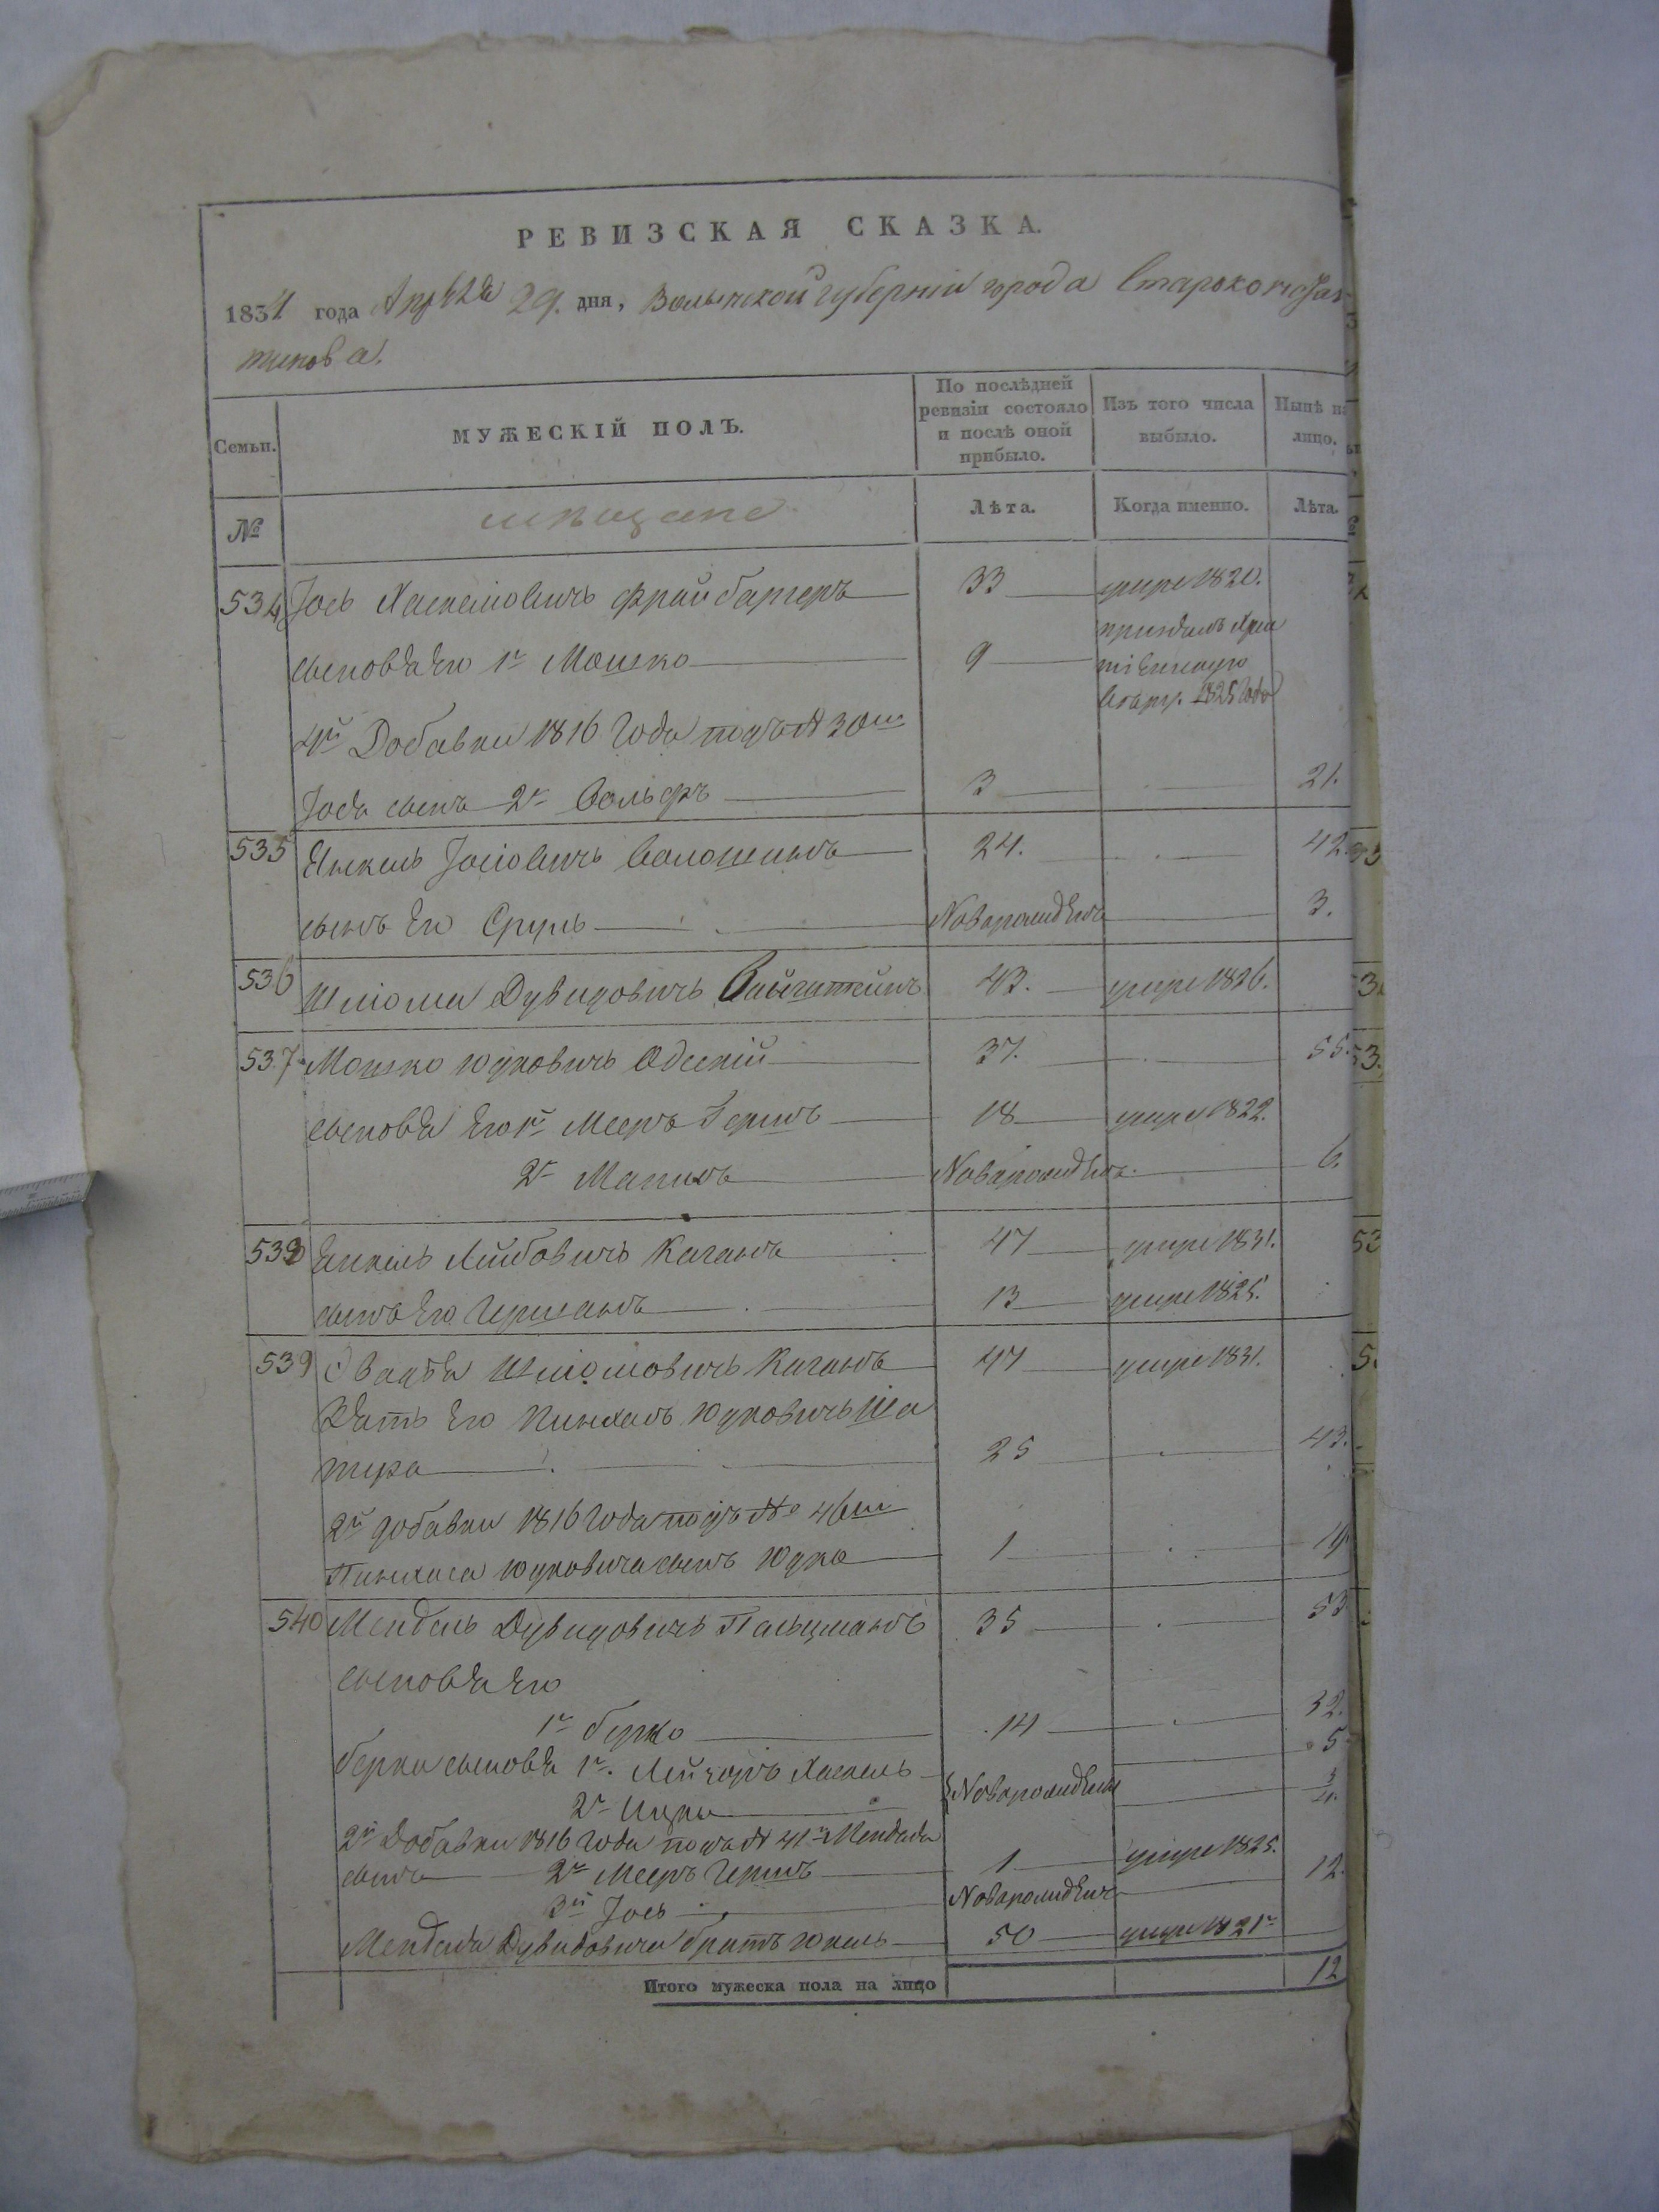 РЕВИЗСКАЯ СКАЗКА.
1834 года Апрѣля 29. дня, Волынской губерніи города Староконстан
тинова.
Семьи. МУЖЕСКІЙ ПОЛЪ. По послѣдней ревизіи состояло и послѣ оной прибыло. Изъ того числа выбыло. Нынѣ на лицо.
№ мѣщане Лѣта. Когда именно. Лѣта.
534 Іось Хаскелiовичь Фрайбергеръ 33 умре 1820.
сыновья Его 1й Мошко 9
1825 года
4й Добавки 1816 года подъ № 30ю
Іося сынъ 2й Вольфъ 3 21.
535 Янкель Іосіовичь Волошинъ 24. 42.
сынъ Его Сруль Новорожденъ 3.
536 Шліома Дувидовичь 43. умре 1826.
537 Мошко Юдковичь Одескій 37. 55.
сыновья Его 1й Мееръ Гершъ 18 умре 1822.
2й Манисъ Новорожденъ. 6.
538 Янкель Лейбовичь Каганъ 47 умре 1831.
сынъ Его Гершанъ 13 умре 1825.
539 Овадья Шліомовичь Каганъ 47 умре 1831.
Зять Его Пинхасъ Юдковичь Ша
25 43.
2й добавки 1816 года подъ № 46ю
Пинхаса Юдковича сынъ Юдко 1 19
540 Мендель Дувидовичь Гальцманъ 35 53
сыновья Его
1й Берко 14 32.
Берки сыновья 1й. Лейзоръ Хаскель 5
2й Ицко Новорожденъ
2й Добавки 1816 года подъ № 41й Менделя
сынъ 2й Мееръ Гершъ 1 умре 1825.
3й Іось Новорожденъ 12.
Менделя Дувидовича братъ Юкель 50 умре 1821го
Итого мужеска пола на лицо 12